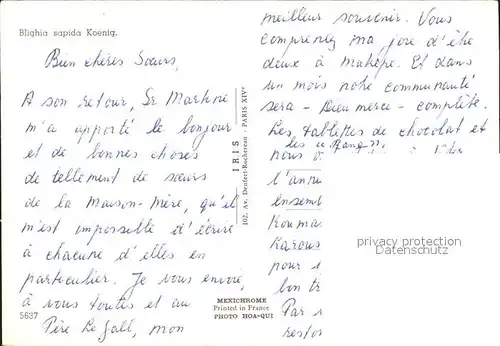 Blighia sapida Koenig.
Bien chères Sœurs,
A son retour, Sr Martine
m'a apporté le bonjour
et de bonnes choses
de tellement de sœurs
de la Maison-Mère, qu'il
m'est impossible d'écrire
à chacune d'elles en
particulier. Je vous envoie,
à vous toutes et au
Père Le Gall, mon
5637
IRIS
102, Av. Denfert-Rochereau - PARIS XIVe
MEXICHROME
Printed in France
PHOTO HOA-QUI
meilleur souvenir. Vous
comprenez ma joie d'être
deux à Mahépé. Et dans
un mois notre communauté
sera - Dieu merci - complète.
Les tablettes de chocolat et
les
nous
l'ann
ensem
Kouma
Karous
pour
bon
Par
restor
privacy protection
Datenschutz